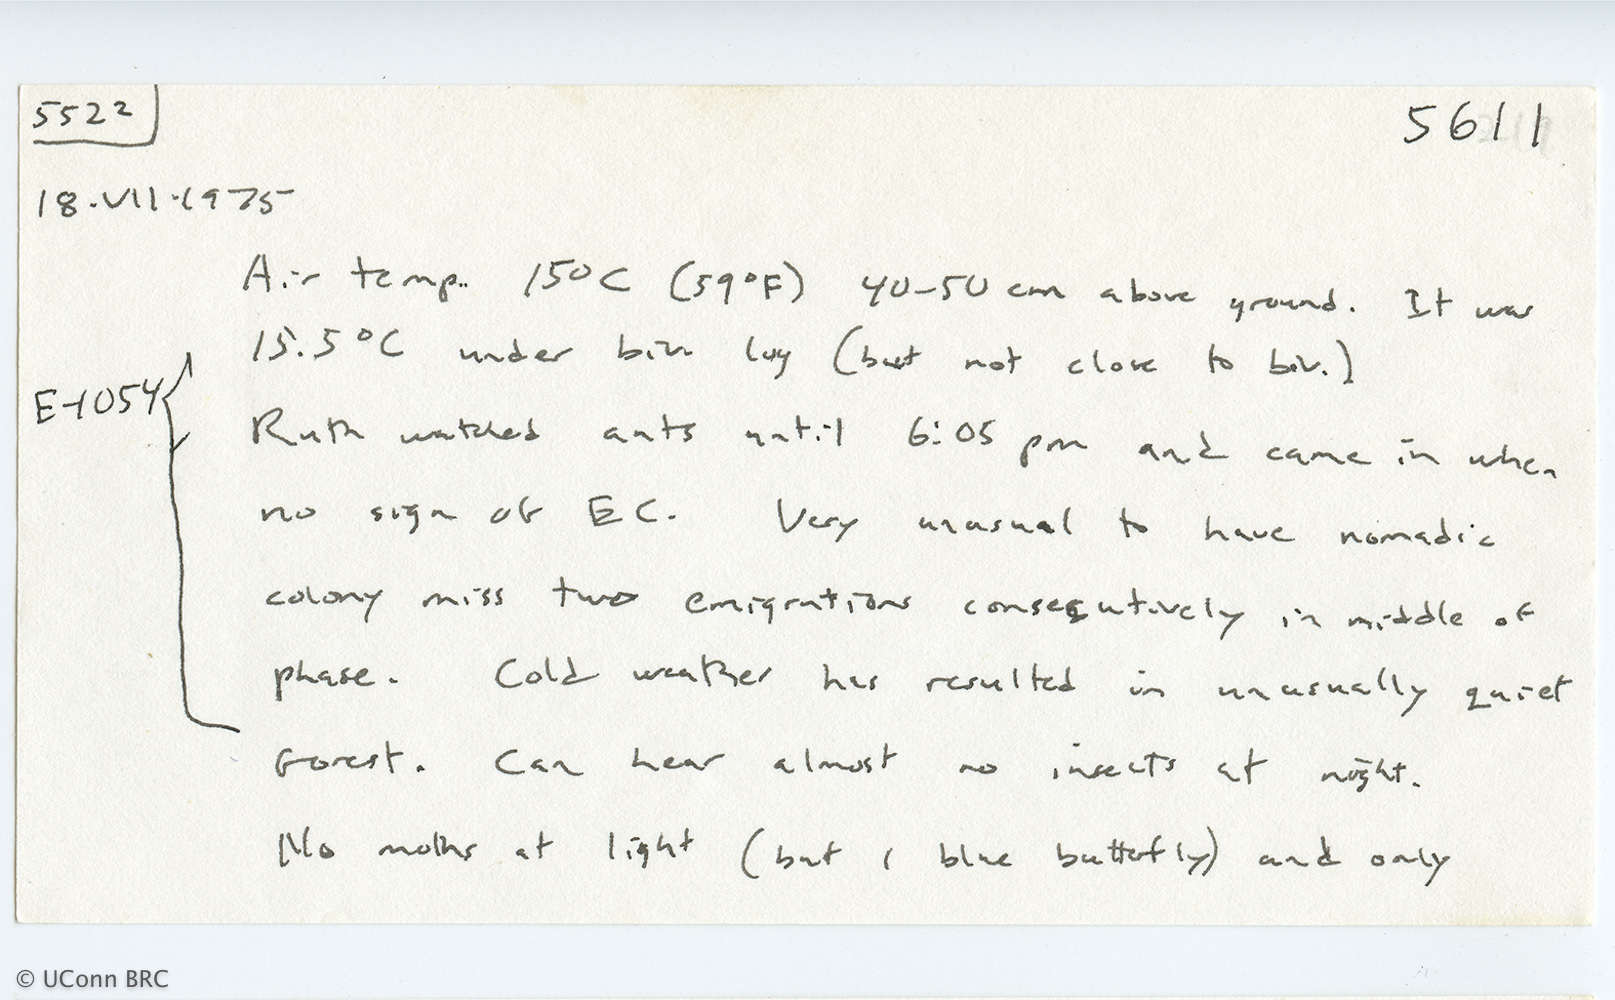 5522
5611
18.VII.1975
Air temp. 15°C (59°F) 40-50 cm above ground. It was
15.5°C under biv log (but not close to biv.)
E-1054
Ruth watched ants until 6:05 pm and came in when
no sign of EC. Very unusual to have nomadic
colony miss two emigrations consecutively in middle of
phase. Cold weather has resulted in unusually quiet
forest. Can hear almost no insects at night.
No moths at light (but 1 blue butterfly) and only
© UConn BRC